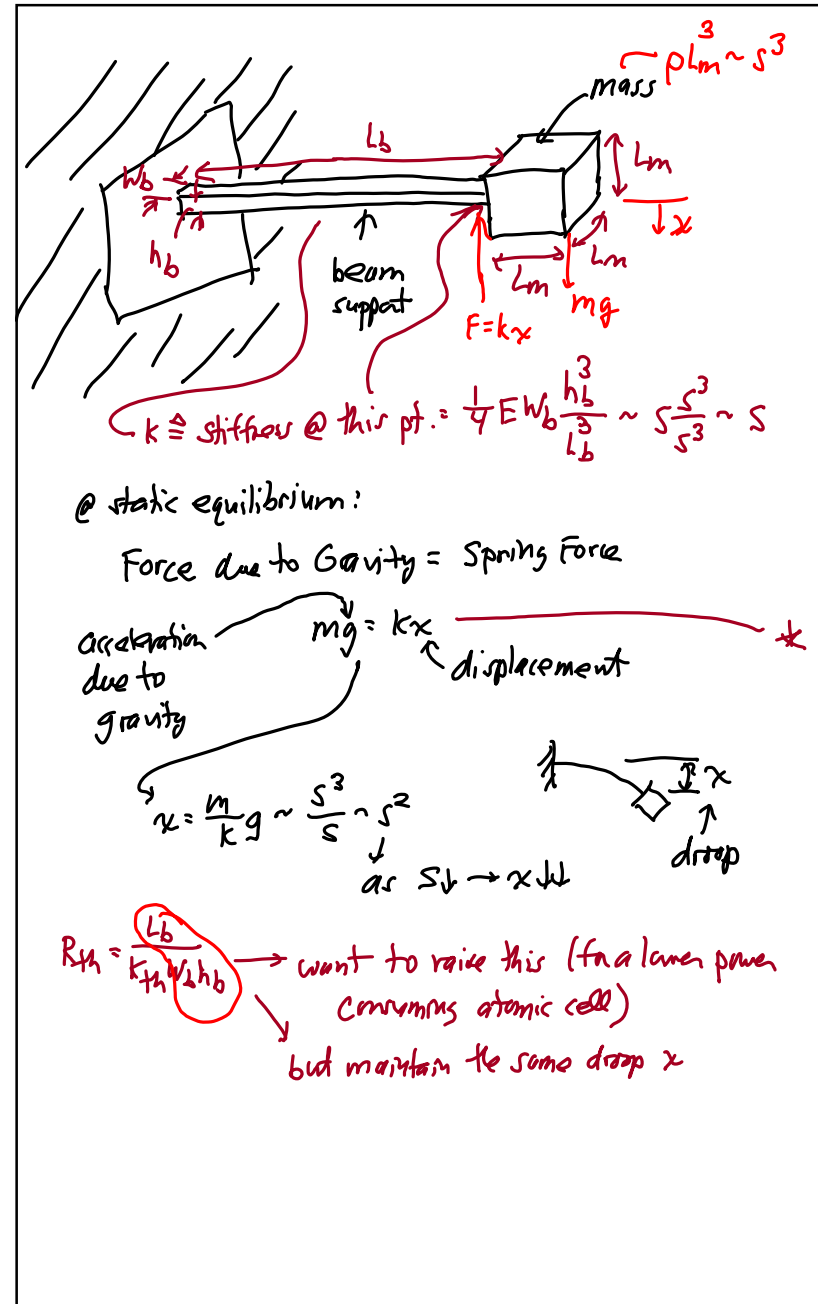 mass ρLm³ ~ s³
Lb
Wb
Lm
↓x
hb
Lm
Lm
beam
support
mg
F=kx
k ≜ stiffness @ this pt. = 1/4 E Wb hb³/Lb³ ~ s s³/s³ ~ s
@ static equilibrium:
Force due to Gravity = Spring Force
mg = kx
acceleration
due to
gravity
displacement
x = m/k g ~ s³/s ~ s²
x
droop
as s↓ → x↓↓
Rth = Lb/(Kth Wb hb) → want to raise this (for a lower power
consuming atomic cell)
but maintain the same droop x